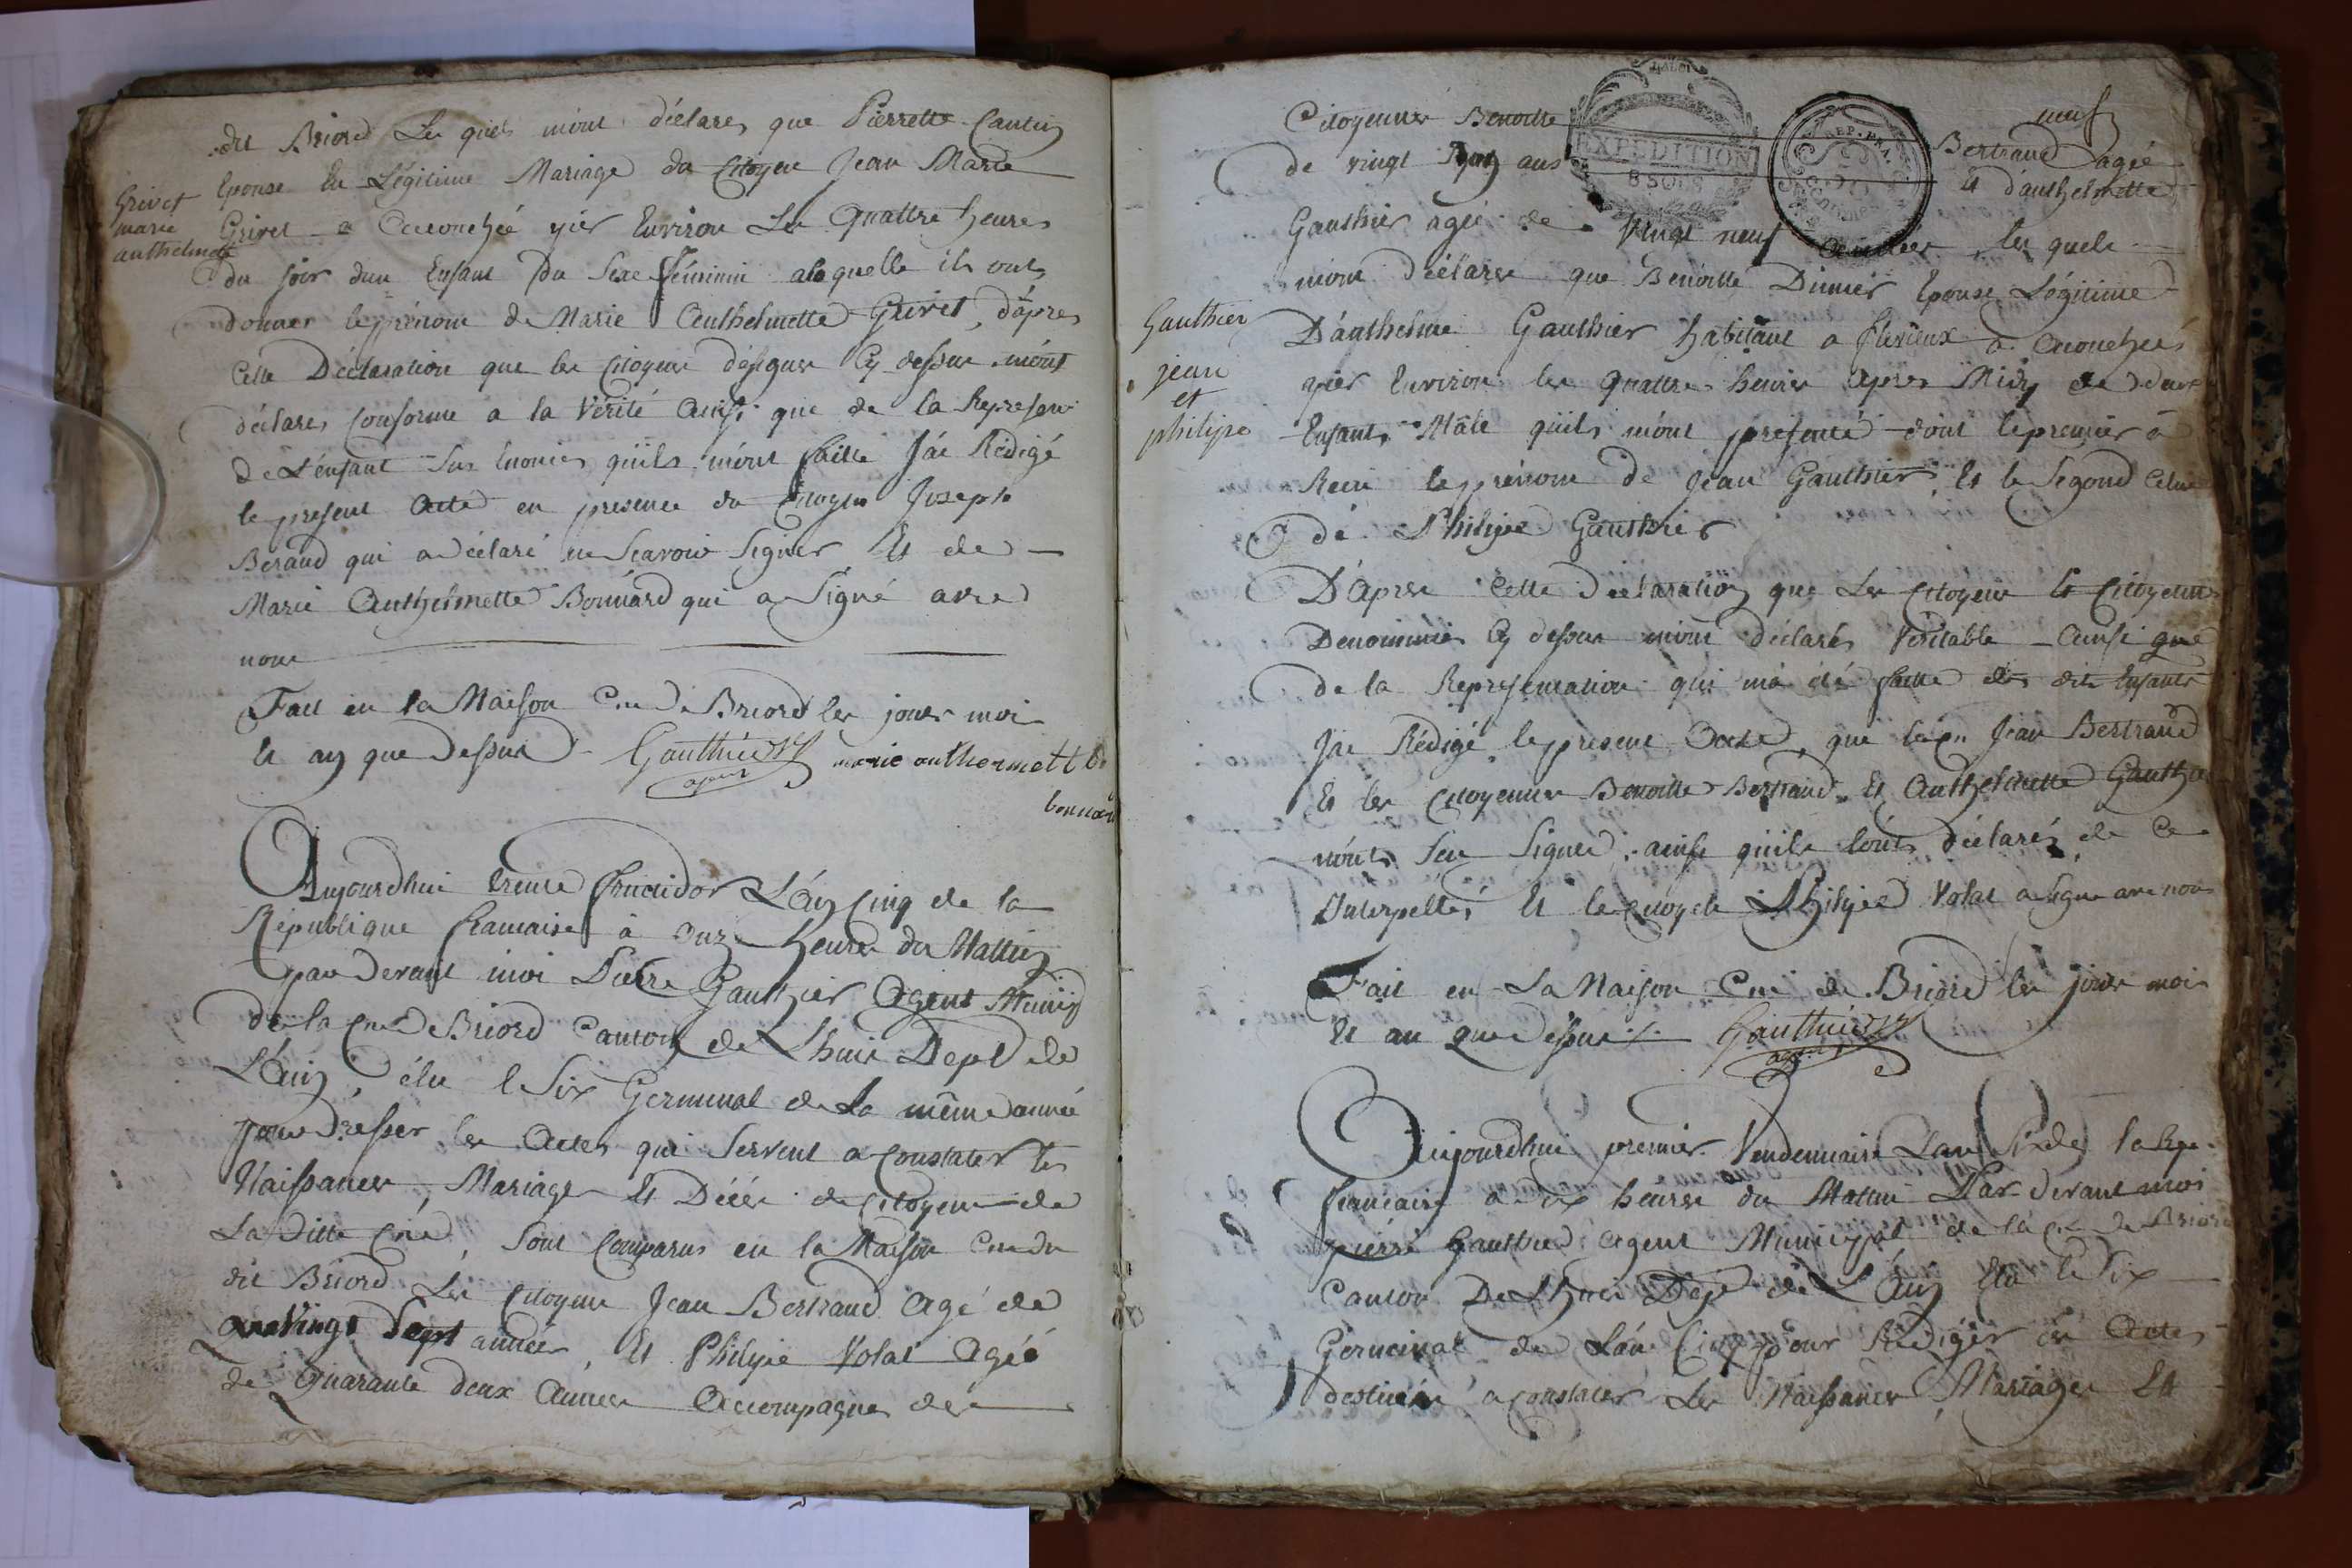 dit Briord Les quels m'ont déclarés que Pierrette Cantin
Grivet
marie
anthelmette
Epouse En Légitime Mariage du Citoyen Jean Marie
Grivet a Accouchée yier Environ Les Quattre heures
du soir d'un Enfant Du Sexe Féminin a laquelle ils ont
donner le prénom de Marie Anthelmette Grivet, d'après
Cette Déclaration que les Citoyens désignes Cy dessus m'ont
déclares conforme a la Vérité Ainsi que de la Represen
de L'enfant Sus Enoncés qu'ils m'ont faitte J'ai Rédigé
le present Acte en presence du Citoyen Joseph
Beraud qui a Déclaré ne Scavoir Signer Et de
Marie Anthelmette Bonnard qui a Signé avec
nous
Fait en la Maison Cne De Briord les jours moi
Et an que Dessus Gauthier
agent
marie anthermett b
bonnar
Aujourdhui trente fructidor L'an Cinq de la
République francaise à onze heures du Mattin
par devant moi Pierre Gauthier Agent Municip
de la Cne De Briord Canton de Lhuis Dept de
L'Ain, élu le Six Germinal de la même année
pour Dresser les Actes qui Servent a constater les
Naissances, Mariages Et Décés de Citoyens de
La Ditte Cne, Sont Comparus en la Maison Cne du
dit Briord Les Citoyens Jean Bertrand Agé de
Sept années, Et Philipe Volat Agéé
de Quarante deux Années Accompagnes des
Citoyennes Benoitte
EXPEDITION
8 SOLS
REP. FRA.
neuf
Bertrand agée
de vingt ans Et d'anthelmette
Gauthier agée de Vingt neuf Années, les quels
m'ont déclarée que Benoitte Dimier Epouse Légitime
Gauthier
jean
et
philipe
D'anthelme Gauthier habitant a flerieux a Accouchés
yier Environ les Quattre heures Apres Midy de deux
Enfants Mâle qu'ils m'ont présenté dont le premier a
Recu le prénom de Jean Gauthier, Et le Segond Celui
de Philipe Gauthier
D'Aprse Cette Déclaration que Les Citoyens Et Citoyennes
Denommés Cy dessus m'ont déclarés Veritable Ainsi que
de la Representation qui m'a été faitte des dits Enfants
J'ai Rédigé le present Acte, que le Cn Jean Bertrand
Et les Citoyennes Benoitte Bertrand Et Anthelmette Gauthie
n'ont Seu Signer, ainsi qu'ils l'ont déclarés de Ce
Interpellés Et le Citoyen Philipe Volat a Signe avec nous
Fait en La Maison Cne de Briord les jours mois
Et an que Dessus Gauthier
agent
Aujourdhui premier Vendemiaire L'an Six de la Rep
francaise a dix heures du Mattin Par devant moi
pierre Gauthier agent Municipal de la Cne de Briord
Canton De Lhuis Dept de L'Ain Elu le Six
Germinal de L'an Cinq pour Rédiger les Actes
destinés a constater Les Naissances Mariages Et